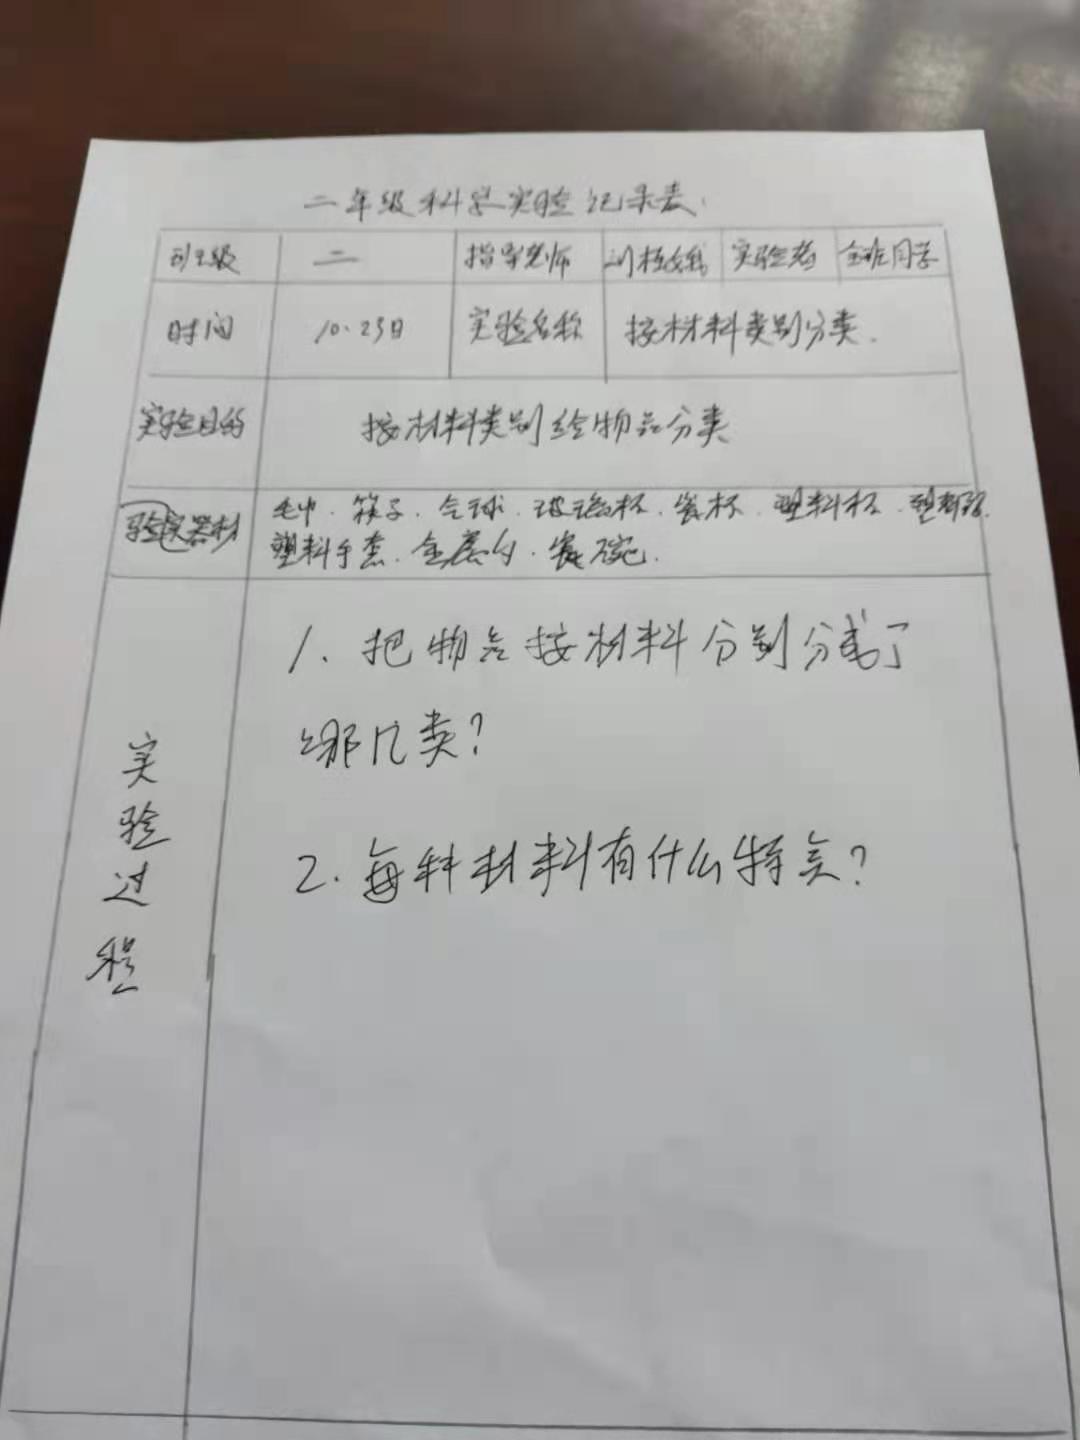 二年级科学实验记录表
班级 二 指导老师 实验者 全班同学
时间 10.23日 实验名称 按材料类别分类.
实验目的 按材料类别给物品分类
实验仪器材 毛巾. 筷子. 气球. 玻璃杯. 瓷杯. 塑料杯. 塑料
塑料手套. 金属勺. 瓷碗.
实验过程
1. 把物品按材料分别分成了
哪几类?
2. 每种材料有什么特点?